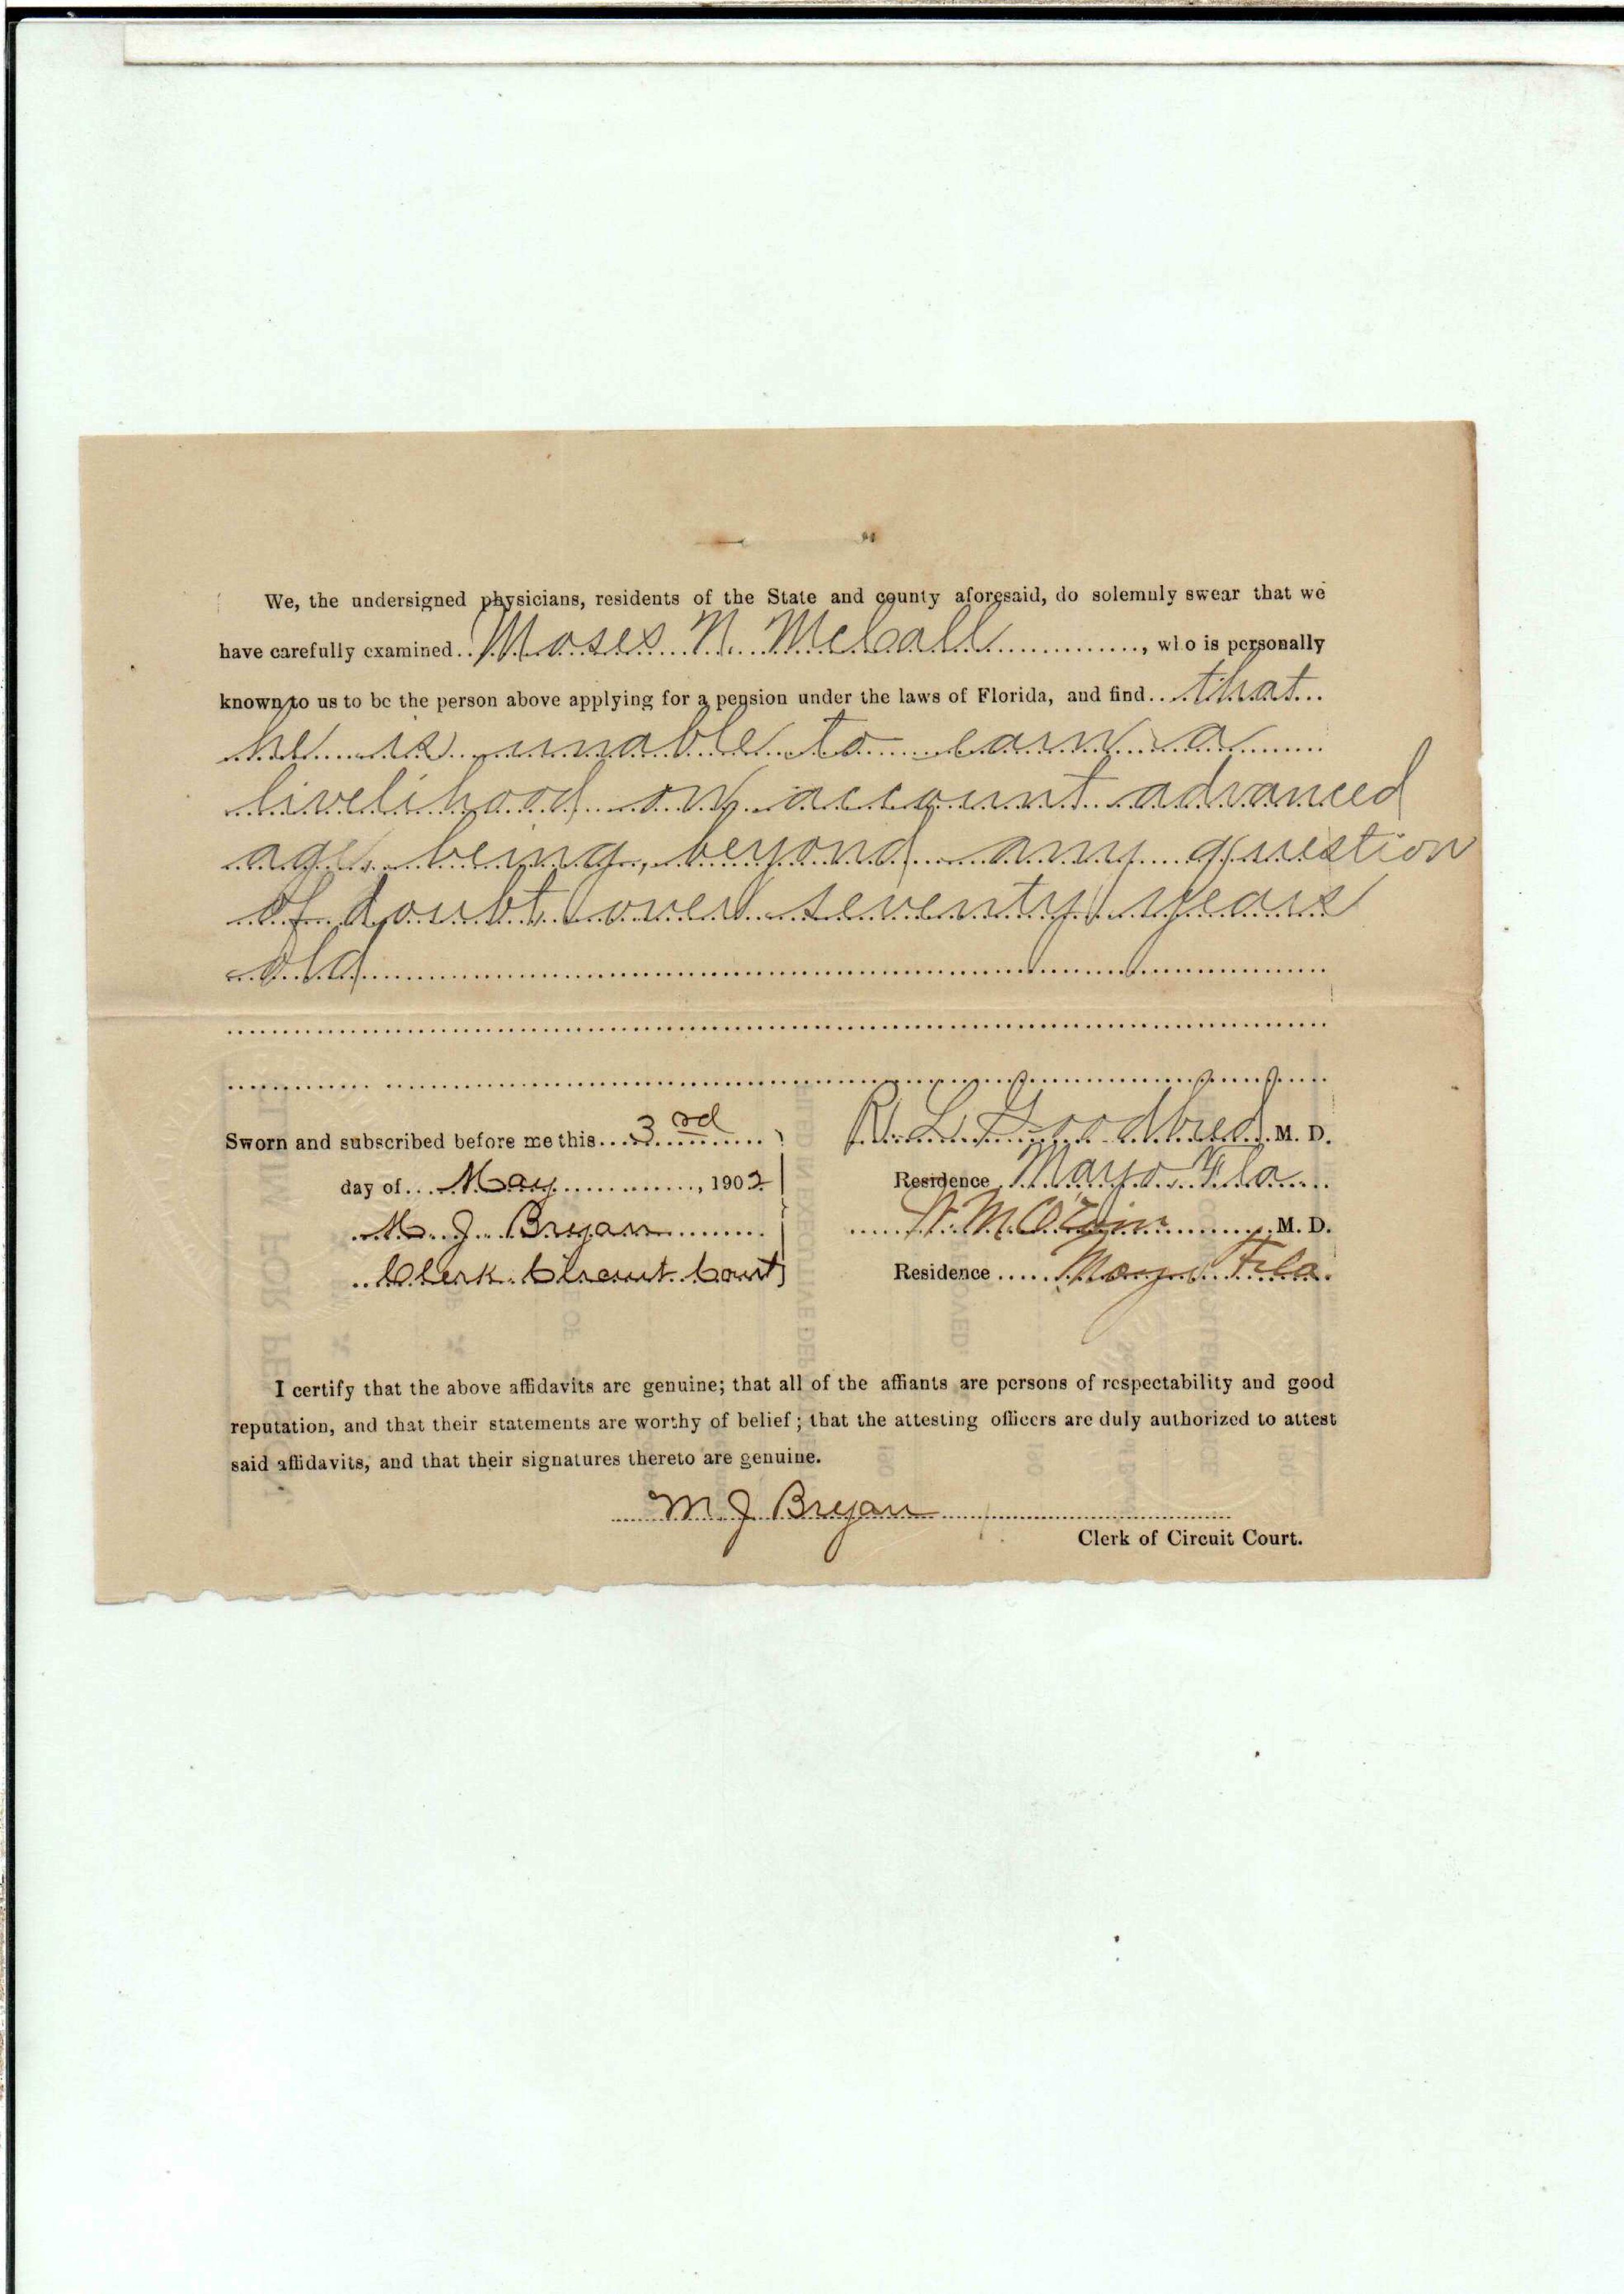 We, the undersigned physicians, residents of the State and county aforesaid, do solemnly swear that we
have carefully examined Moses N. McCall, who is personally
known to us to be the person above applying for a pension under the laws of Florida, and find that
he is unable to earn a
livelihood on account advanced
age, being, beyond any question
of doubt over seventy years
old
Sworn and subscribed before me this 3rd
day of May, 1902
M J Bryan
Clerk Circuit Court
R. L. Goodbred M. D.
Residence Mayo Fla
M. D.
Residence Mayo Fla.
I certify that the above affidavits are genuine; that all of the affiants are persons of respectability and good
reputation, and that their statements are worthy of belief; that the attesting officers are duly authorized to attest
said affidavits, and that their signatures thereto are genuine.
M J Bryan
Clerk of Circuit Court.